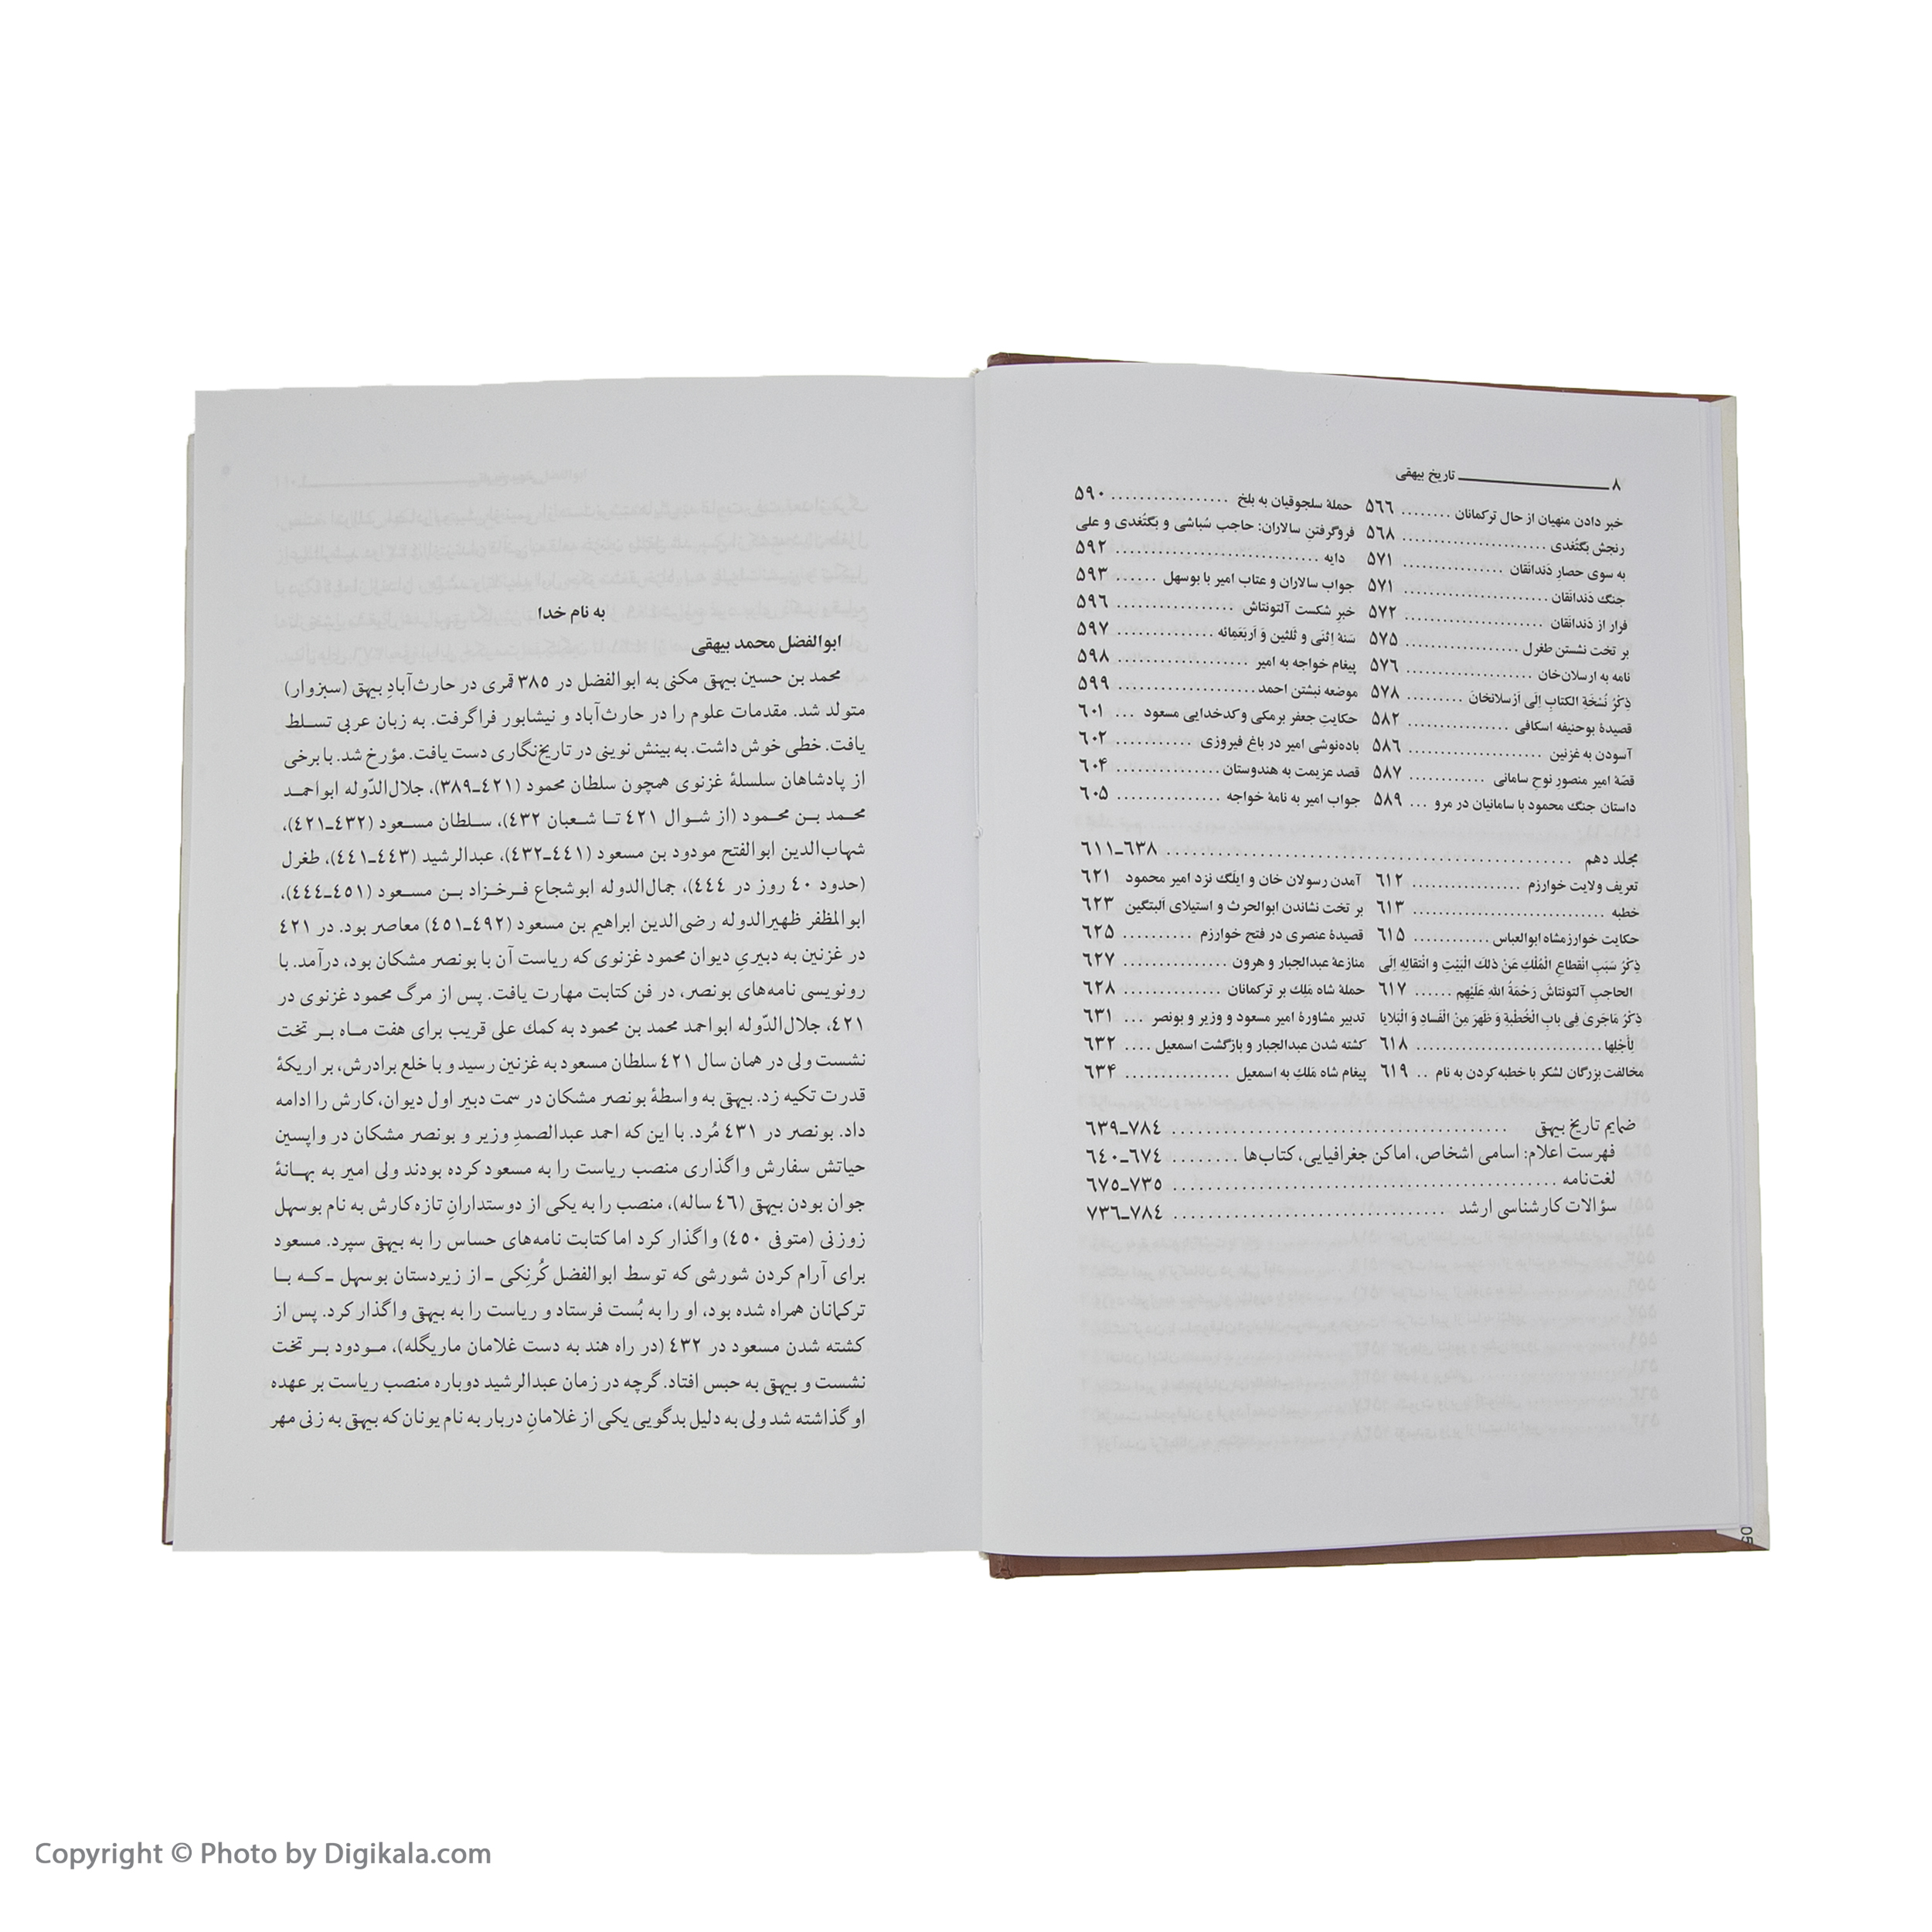 ۸ تاریخ بیهقی
خبر دادن منهیان از حال ترکمانان ........ ۵۶۶
رنجش بگتُغدی ...................... ۵۶۸
به سوی حصارِ دَندانْقان ............... ۵۷۱
جنگ دَندانْقان ...................... ۵۷۱
فرار از دَندانْقان ..................... ۵۷۲
بر تخت نشستن طغرل .................. ۵۷۵
نامه به ارسلان‌خان ................... ۵۷۶
ذِکْرُ نُسْخَةِ الکتابِ اِلی اَرْسلانخان ......... ۵۷۸
قصیدهٔ بوحنیفه اسکافی ................ ۵۸۲
آسودن به غزنین ..................... ۵۸۶
قصّهٔ امیر منصورِ نوحِ سامانی ............ ۵۸۷
داستان جنگ محمود با سامانیان در مرو ... ۵۸۹
حملهٔ سلجوقیان به بلخ ................. ۵۹۰
فروگرفتنِ سالاران: حاجب سُباشی و بگتُغدی و علی
دایه ............................. ۵۹۲
جواب سالاران و عتاب امیر با بوسهل ...... ۵۹۳
خبرِ شکست آلتونتاش ................. ۵۹۶
سَنهٔ اِثْنَی و ثَلثین وَ اَربَعَمِائه .............. ۵۹۷
پیغام خواجه به امیر ................... ۵۹۸
موضعه نبشتن احمد .................... ۵۹۹
حکایتِ جعفر برمکی و کدخدایی مسعود ... ۶۰۱
باده‌نوشی امیر در باغ فیروزی ........... ۶۰۲
قصد عزیمت به هندوستان ............... ۶۰۴
جواب امیر به نامهٔ خواجه ............... ۶۰۵
مجلد دهم .................................................. ۶۳۸ـ۶۱۱
تعریف ولایت خوارزم ................ ۶۱۲
خطبه ............................ ۶۱۳
حکایت خوارزمشاه ابوالعباس ............ ۶۱۵
ذِکْرُ سَبَبِ انْقطاعِ الْمُلْكِ عَنْ ذلكَ الْبَیْتِ و انْتقالِهِ اِلَی
الحاجبِ آلتونتاشَ رَحْمَةُ اللهِ عَلَیْهِم ...... ۶۱۷
ذِکْرُ ماجَریَ فِی بابِ الْخُطْبةِ وَ ظَهَرَ مِنْ الْفَسادِ وَ الْبَلایا
لِأَجْلِها ............................ ۶۱۸
مخالفت بزرگان لشکر با خطبه کردن به نام .. ۶۱۹
آمدن رسولان خان و ایلَگ نزد امیر محمود ۶۲۱
بر تخت نشاندن ابوالحرث و استیلای آلبتگین ۶۲۳
قصیدهٔ عنصری در فتح خوارزم .......... ۶۲۵
منازعهٔ عبدالجبار و هرون ............... ۶۲۷
حملهٔ شاه مَلِك بر ترکمانان .............. ۶۲۸
تدبیر مشاورهٔ امیر مسعود و وزیر و بونصر ... ۶۳۱
کشته شدن عبدالجبار و بازگشت اسمعیل .... ۶۳۲
پیغام شاه مَلكِ به اسمعیل ............... ۶۳۴
ضمایم تاریخ بیهق ........................................ ۷۸۴ـ۶۳۹
فهرست اعلام: اسامی اشخاص، اماکن جغرافیایی، کتاب‌ها ........ ۶۷۴ـ۶۴۰
لغت‌نامه ................................................. ۷۳۵ـ۶۷۵
سؤالات کارشناسی ارشد ................................. ۷۸۴ـ۷۳۶
به نام خدا
ابوالفضل محمد بیهقی
محمد بن حسین بیهق مکنی به ابوالفضل در ۳۸۵ قمری در حارث‌آبادِ بیهق (سبزوار)
متولد شد. مقدمات علوم را در حارث‌آباد و نیشابور فراگرفت. به زبان عربی تسلط
یافت. خطی خوش داشت. به بینش نوینی در تاریخ‌نگاری دست یافت. مؤرخ شد. با برخی
از پادشاهان سلسلهٔ غزنوی همچون سلطان محمود (۴۲۱ـ۳۸۹)، جلال‌الدّوله ابواحمد
محمد بن محمود (از شوال ۴۲۱ تا شعبان ۴۳۲)، سلطان مسعود (۴۳۲ـ۴۲۱)،
شهاب‌الدین ابوالفتح مودود بن مسعود (۴۴۱ـ۴۳۲)، عبدالرشید (۴۴۳ـ۴۴۱)، طغرل
(حدود ۴۰ روز در ۴۴۴)، جمال‌الدوله ابوشجاع فرخزاد بن مسعود (۴۵۱ـ۴۴۴)،
ابوالمظفر ظهیرالدوله رضی‌الدین ابراهیم بن مسعود (۴۹۲ـ۴۵۱) معاصر بود. در ۴۲۱
در غزنین به دبیریِ دیوان محمود غزنوی که ریاست آن با بونصر مشکان بود، درآمد. با
رونویسی نامه‌های بونصر، در فن کتابت مهارت یافت. پس از مرگ محمود غزنوی در
۴۲۱، جلال‌الدّوله ابواحمد محمد بن محمود به کمك علی قریب برای هفت ماه بر تخت
نشست ولی در همان سال ۴۲۱ سلطان مسعود به غزنین رسید و با خلع برادرش، بر اریکهٔ
قدرت تکیه زد. بیهق به واسطهٔ بونصر مشکان در سمت دبیر اول دیوان، کارش را ادامه
داد. بونصر در ۴۳۱ مُرد. با این که احمد عبدالصمدِ وزیر و بونصر مشکان در واپسین
حیاتش سفارش واگذاری منصب ریاست را به مسعود کرده بودند ولی امیر به بهانهٔ
جوان بودن بیهق (۴۶ ساله)، منصب را به یکی از دوستدارانِ تازه‌کارش به نام بوسهل
زوزنی (متوفی ۴۵۰) واگذار کرد اما کتابت نامه‌های حساس را به بیهق سپرد. مسعود
برای آرام کردن شورشی که توسط ابوالفضل کُرنِکی ـ از زیردستان بوسهل ـ که با
ترکمانان همراه شده بود، او را به بُست فرستاد و ریاست را به بیهق واگذار کرد. پس از
کشته شدن مسعود در ۴۳۲ (در راه هند به دست غلامان ماریگله)، مودود بر تخت
نشست و بیهق به حبس افتاد. گرچه در زمان عبدالرشید دوباره منصب ریاست بر عهده
او گذاشته شد ولی به دلیل بدگویی یکی از غلامانِ دربار به نام یونان که بیهق به زنی مهر
Copyright © Photo by Digikala.com